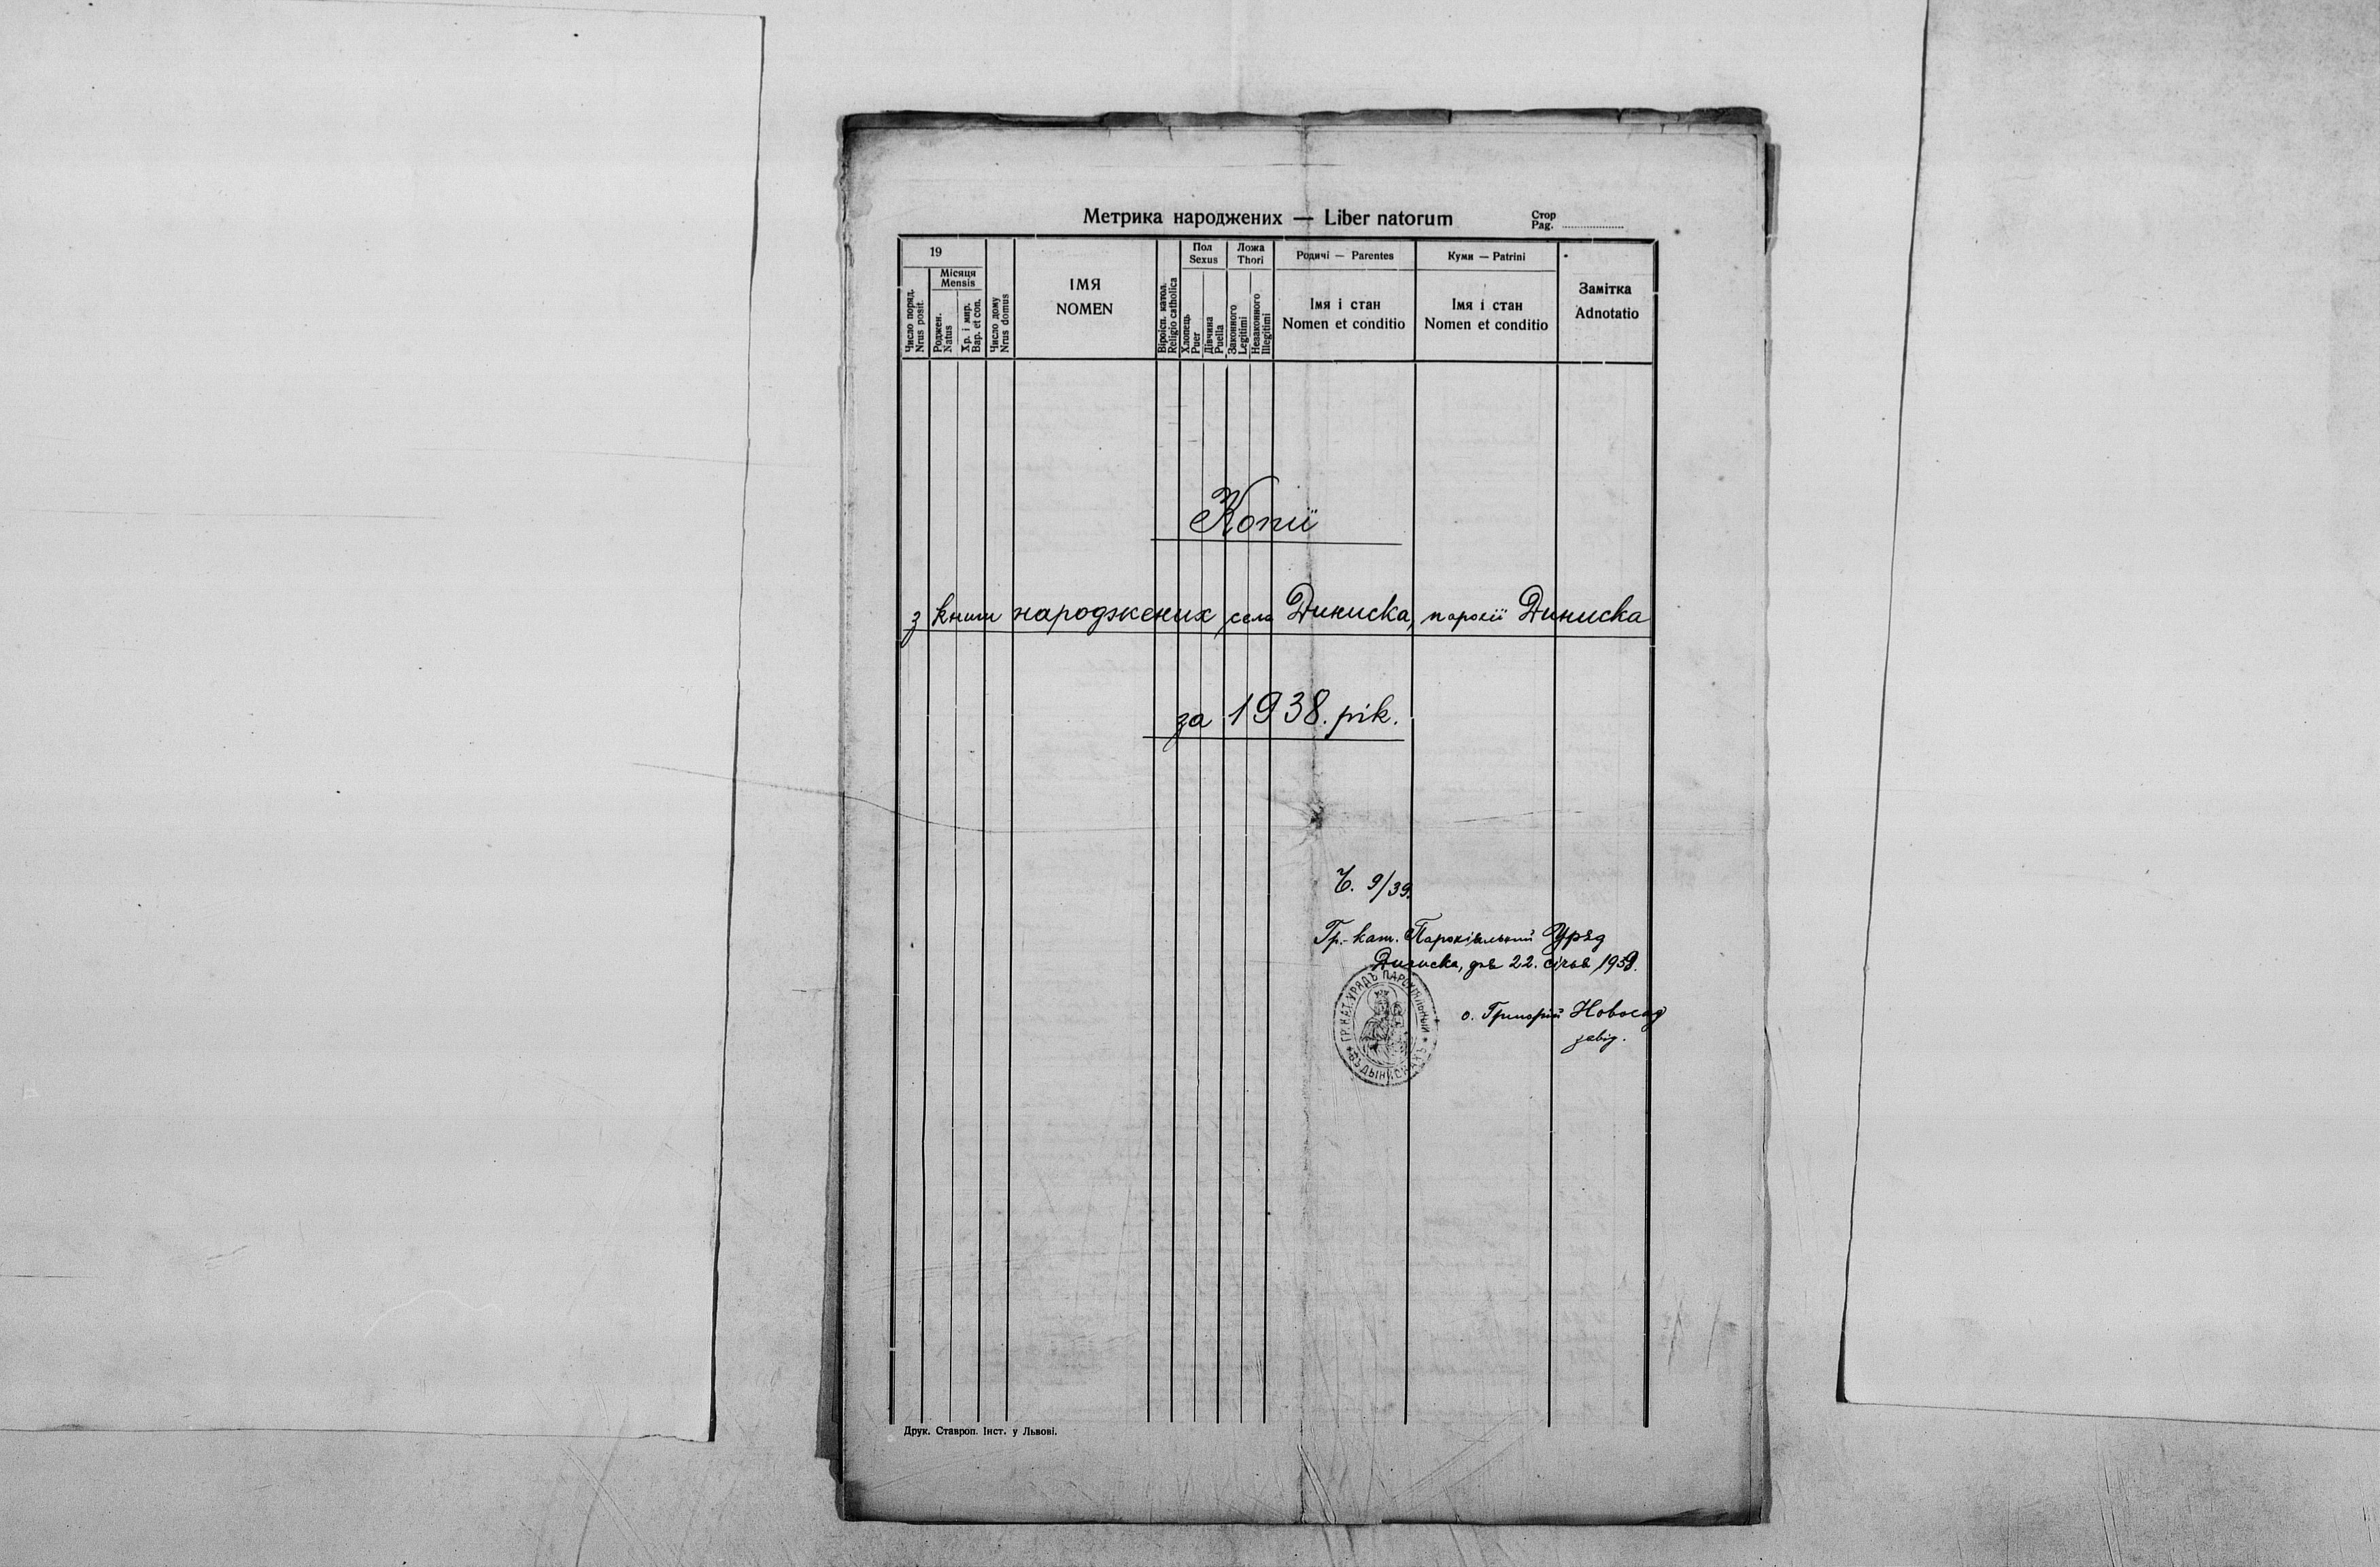 Метрика народжених — Liber natorum
Стор
Pag.
19
Число поряд.
Nrus posit.
Місяця
Mensis
Роджен.
Natus
Хр. і мир.
Bap. et con.
Число дому
Nrus domus
ІМЯ
NOMEN
Віросп. катол.
Religio catholica
Пол
Sexus
Хлопець
Puer
Дівчина
Puella
Ложа
Thori
Законного
Legitimi
Незаконного
Illegitimi
Родичі — Parentes
Імя і стан
Nomen et conditio
Куми — Patrini
Імя і стан
Nomen et conditio
Замітка
Adnotatio
Копії
з книги народжених села Диниска, парохії Диниска
за 1938. рік.
Ч. 9/39.
Гр.-кат. Парохіяльний Уряд
Диниска, дня 22. січня 1939.
о. Григорій Новосад
завід.
ГР. КАТ. УРЯДЪ ПАРОХІЯЛЬНЫЙ
ВЪ ДЫНИСКАХЪ
Друк. Ставроп. Інст. у Львові.